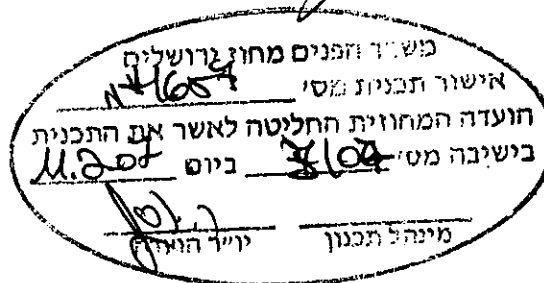 משרד הפנים מחוז ירושלים
אישור תכנית מס׳
הועדה המחוזית החליטה לאשר את התכנית
בישיבה מס׳ ביום 11.2.07
מינהל תכנון יו״ר הועדה